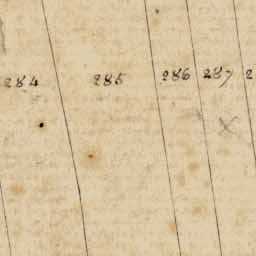 284 285 286 287